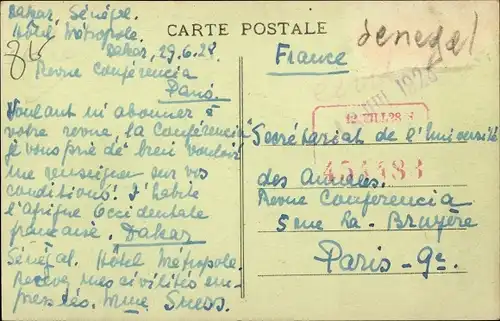 Dakar. Sénégal.
Hôtel Métropole.
Dakar, 29.6.28.
Revue Conférencia
Paris.
Voulant m'abonner à
votre revue, la Conférencia
je vous prie de bien vouloir
me renseigner sur vos
conditions! J'habite
l'Afrique Occidentale
française. Dakar
Sénégal. Hôtel Métropole.
Recevez mes civilités em-
pressées. Mme Suess.
CARTE POSTALE
France
Senegal
VIII 1928
12.VIII.28
454483
Secrétariat de l'Université
des Annales.
Revue Conferencia
5 rue La-Bruyère
Paris-9e.